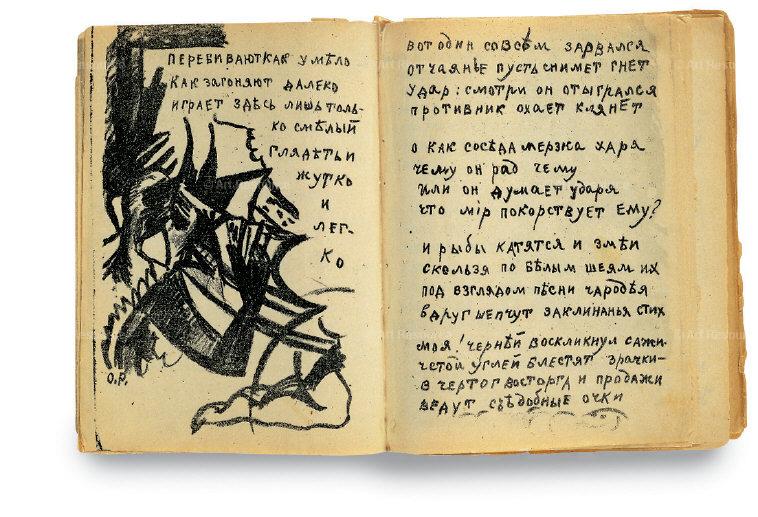 ПЕРЕБИВАЮТ КАК УМѢЛО
КАК ЗАГОНЯЮТ ДАЛЕКО
ИГРАЕТ ЗДѢСЬ ЛИШЬ ТОЛЬ-
КО СМѢЛЫЙ
ГЛЯДѢТЬ И
ЖУТКО
И
ЛЕГ-
КО
О.Р.
ВОТ ОДИН СОВСѢМ ЗАРВАЛСЯ
ОТЧАЯНЬЕ ПУСТЬ СНИМЕТ ГНЕТ
УДАР: СМОТРИ ОН ОТЫГРАЛСЯ
ПРОТИВНИК ОХАЕТ КЛЯНЕТ
О КАК СОСѢДА МЕРЗКА ХАРЯ
ЧЕМУ ОН РАД ЧЕМУ
ИЛИ ОН ДУМАЕТ УДАРЯ
ЧТО МІР ПОКОРСТВУЕТ ЕМУ?
И РЫБЫ КАТЯТСЯ И ЗМѢИ
СКОЛЬЗЯ ПО БѢЛЫМ ШЕЯМ ИХ
ПОД ВЗГЛЯДОМ ПѢСНИ ЧАРОДѢЯ
ВДРУГ ШЕПЧУТ ЗАКЛИНАНЬЯ СТИХ
МОЯ! ЧЕРНѢЙ ВОСКЛИКНУЛ САЖИ-
ЧЕТОЙ УГЛЕЙ БЛЕСТЯТ ЗРАЧКИ-
В ЧЕРТОГ ВОСТОРГА И ПРОДАЖИ
ВЕДУТ СЪѢДОБНЫЕ ОЧКИ